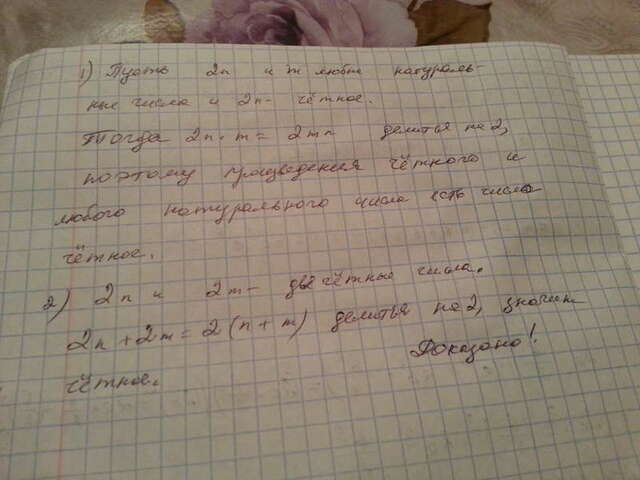 1) Пусть 2n и m любые натураль-
ные числа и 2n - чётное.
Тогда 2n·m = 2mn делится на 2,
поэтому произведения чётного и
любого натурального числа есть число
чётное.
2) 2n и 2m - две чётные числа.
2n + 2m = 2(n + m) делится на 2, значит
чётное.
Доказано!